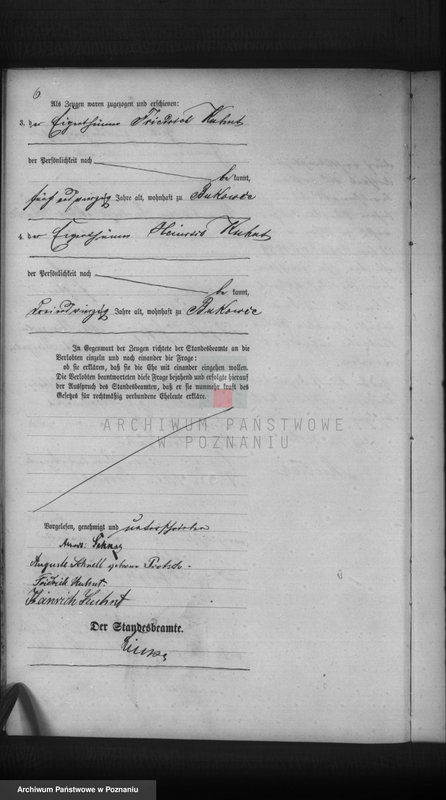 6
Als Zeugen waren zugezogen und erschienen:
3. der Eigenthümer Friedrich Kuhnt
der Persönlichkeit nach
be kannt,
fünf und vierzig Jahre alt, wohnhaft zu Bukowie
4. der Eigenthümer Heinrich Kuhnt
der Persönlichkeit nach
be kannt,
Jahre alt, wohnhaft zu Bukowie
In Gegenwart der Zeugen richtete der Standesbeamte an die
Verlobten einzeln und nach einander die Frage:
ob sie erklären, daß sie die Ehe mit einander eingehen wollen.
Die Verlobten beantworteten diese Frage bejahend und erfolgte hierauf
der Ausspruch des Standesbeamten, daß er sie nunmehr kraft des
Gesetzes für rechtmäßig verbundene Eheleute erkläre.
ARCHIWUM PAŃSTWOWE
W POZNANIU
Vorgelesen, genehmigt und unterschrieben
Auguste Schnell geborene
Friedrich Kuhnt.
Heinrich Kuhnt
Der Standesbeamte.
Archiwum Państwowe w Poznaniu